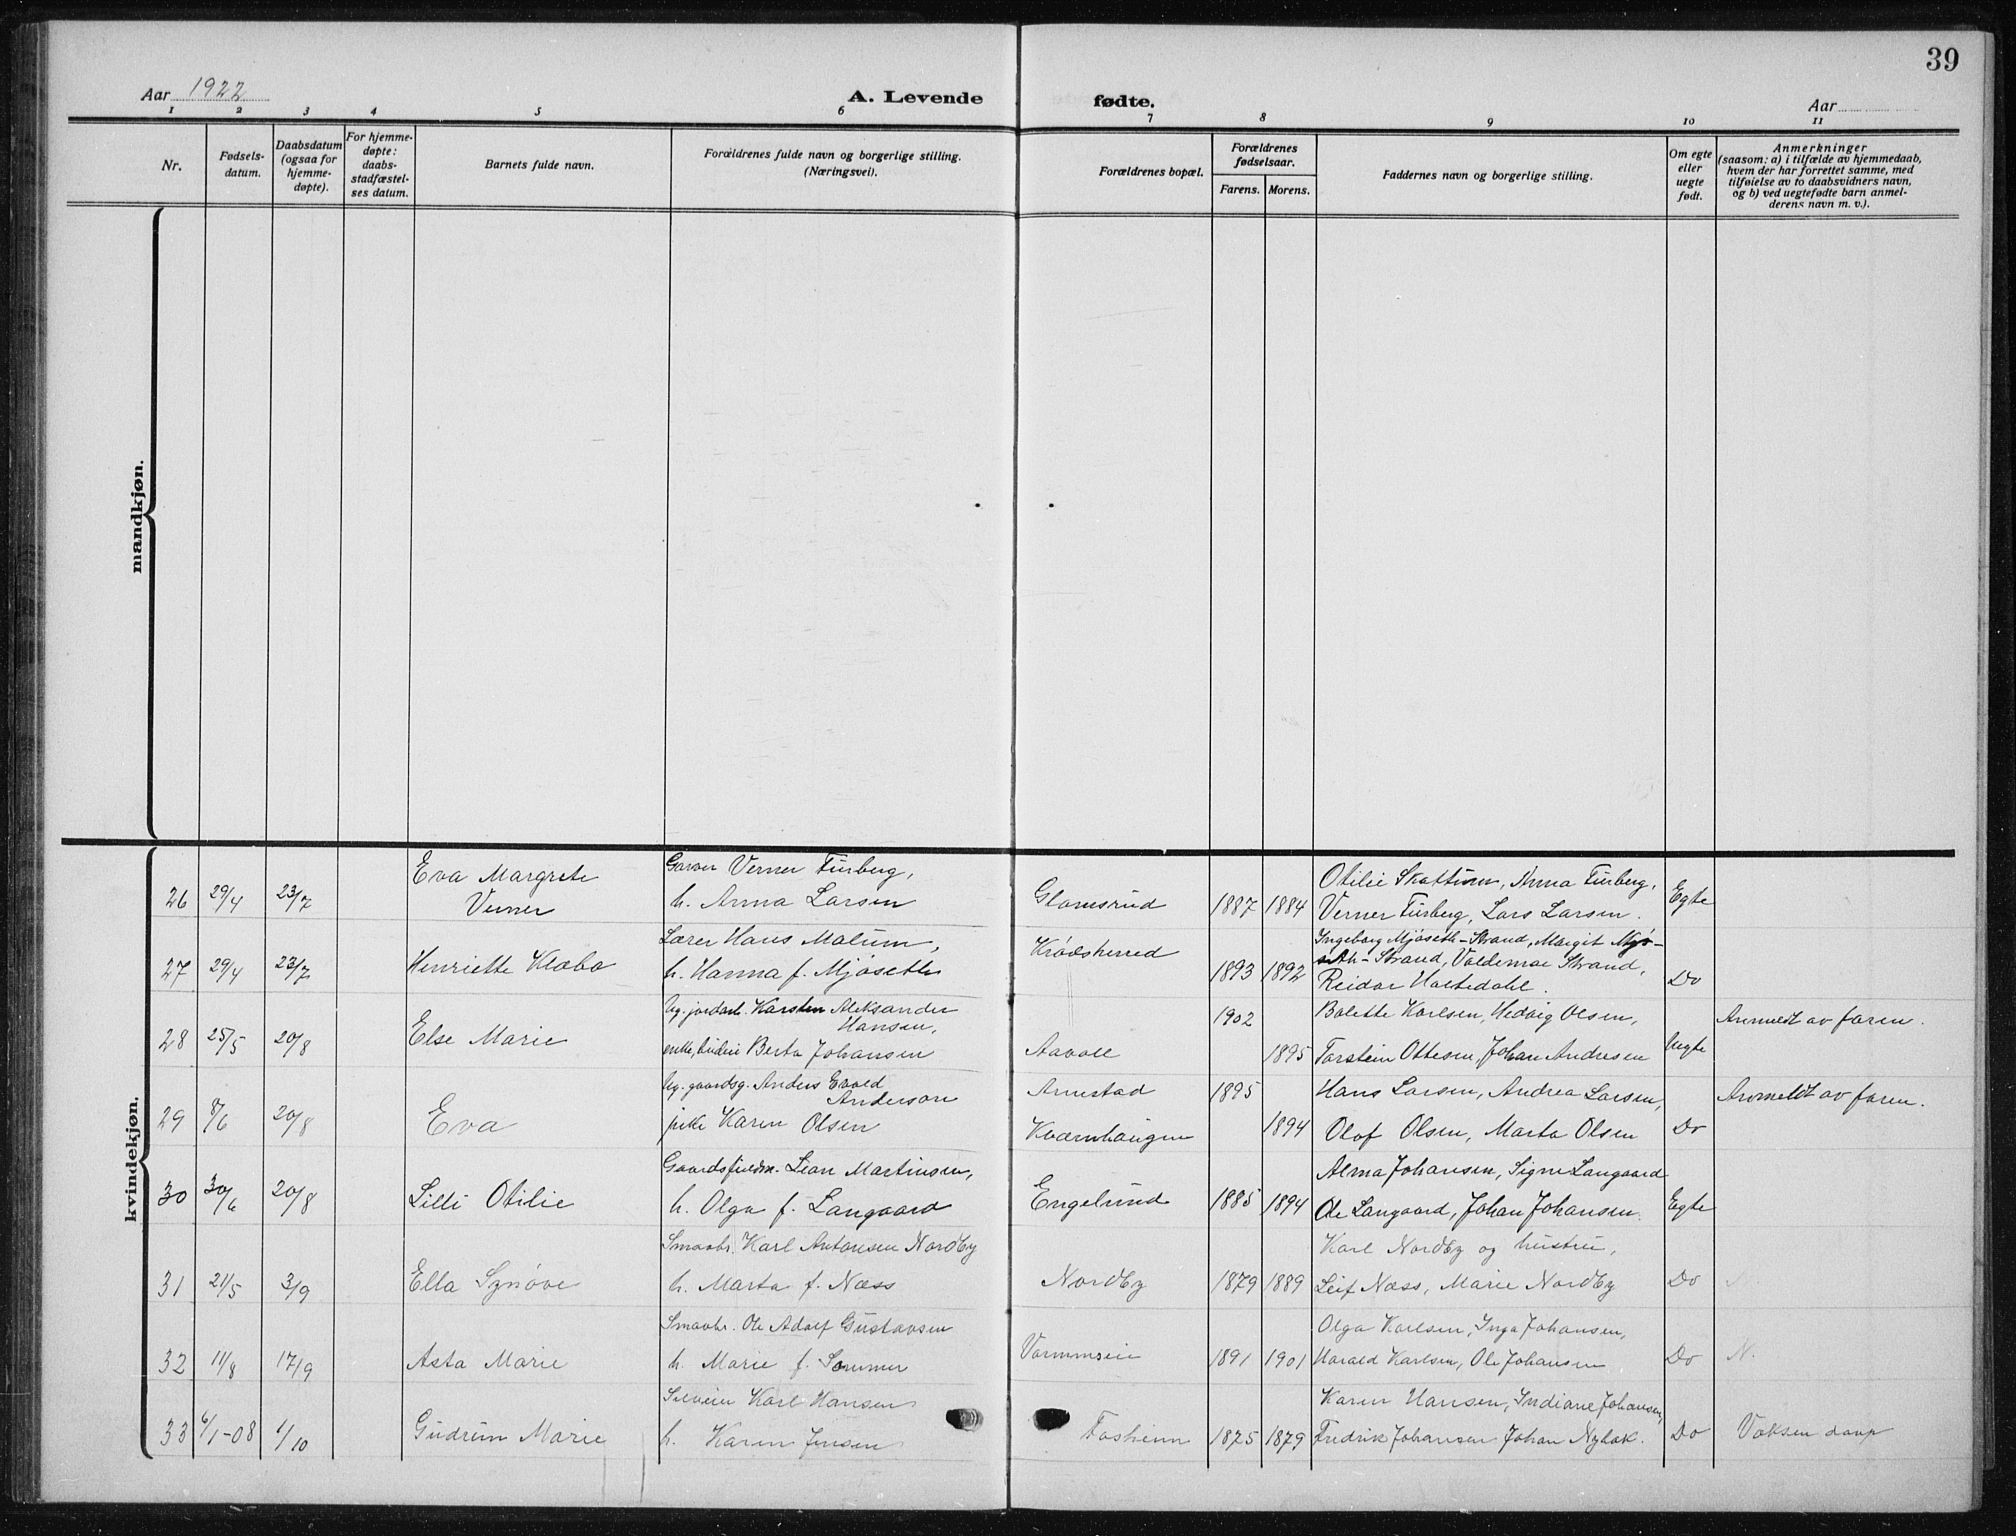 39
Aar 1922
A. Levende
fødte.
Aar
1 2 3 4 5 6 7 8 9 10 11
Nr.
Fødsels-
datum.
Daabsdatum
(ogsaa for
hjemme-
døpte).
For hjemme-
døpte:
daabs-
stadfæstel-
ses datum.
Barnets fulde navn.
Forældrenes fulde navn og borgerlige stilling.
(Næringsvei).
Forældrenes bopæl.
Forældrenes
fødselsaar.
Farens. Morens.
Faddernes navn og borgerlige stilling.
Om egte
eller
uegte
født.
Anmerkninger
(saasom: a) i tilfælde av hjemmedaab,
hvem der har forrettet samme, med
tilføielse av to daabsvidners navn,
og b) ved uegtefødte barn anmel-
derens navn m. v.).
mandkjøn.
kvindekjøn.
Eva Margrete Garver Verner Furberg, Otilie Skattum, Anna Furberg,
26 29/4 23/7 Verner h. Anna Larsen Glomsrud 1887 1884 Verner Furberg, Lars Larsen. Egte
Lærer Hans Malum, Ingeborg Mjøseth-Strand, Margit Mjø-
27 29/4 23/7 Henriette Klæbo h. Hanna f. Mjøseth Krødsherred 1893 1892 seth-Strand, Valdemar Strand,
Reidar Holtedahl. Do
Ug. jordarb. Karsten Aleksander
Hansen, 1902 Bolette Karlsen, Hedvig Olsen, Anmeldt av faren.
28 25/5 20/8 Else Marie enke, Berta Johansen Aavall 1895 Torstein Ottesen, Johan Andresen Uegte
Ug. gaardsg. Anders Evald
Anderson Arnestad 1895 Hans Larsen, Andrea Larsen, Anmeldt av faren.
29 8/6 20/8 Eva pike Karen Olsen Kværnhaugen 1894 Olof Olsen, Marta Olsen Do
Gaardsfuldm. Lean Martinsen, Alma Johansen, Signe Langaard
30 30/6 20/8 Lilli Otilie h. Olga f. Langaard Engelrud 1885 1894 Ole Langaard, Johan Johansen. Egte
Smaabr. Karl Antonsen Nordby Karl Nordby og hustru,
31 21/5 3/9 Ella Synøve h. Marta f. Næss Nordby 1879 1889 Leif Næss, Marie Nordby Do N
Smaabr. Ole Adolf Gustavsen Olga Karlsen, Inga Johansen,
32 11/8 17/9 Asta Marie h. Marie f. Sommer 1891 1901 Harald Karlsen, Ole Johansen Do N.
Karl Hansen Karen Hansen, Indiane Johansen,
33 6/1-08 1/10 Gudrun Marie h. Karen Jensen Fosheim 1875 1879 Fredrik Johansen Johan Nybak. Do Voksen daap